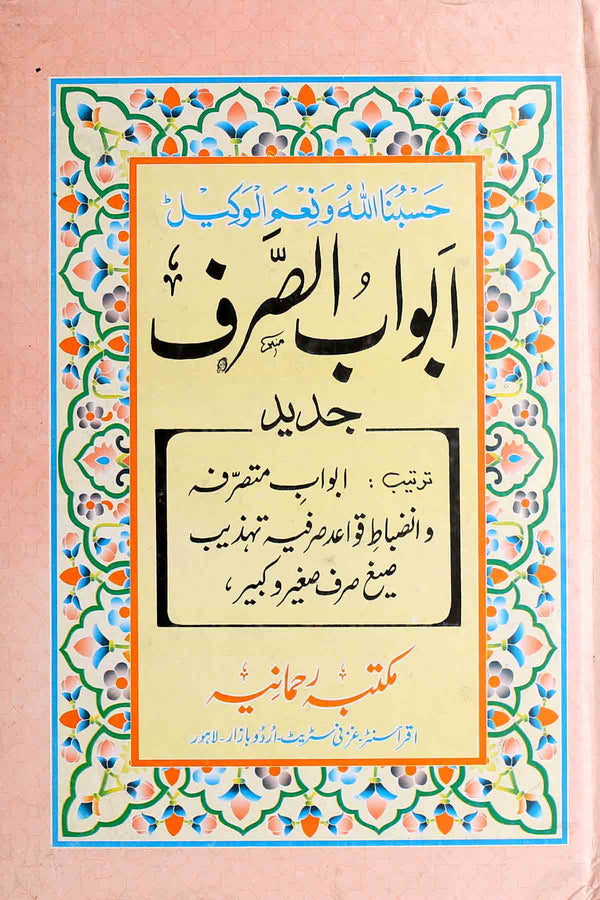 حَسْبُنَا اللّٰهُ وَنِعْمَ الْوَكِيْلُ
اَبوابُ الصَّرف
جدید
ترتیب: ابوابِ متصرّفہ
وانضباطِ قواعد صرفیہ تہذیب
صیغ صرف صغیر و کبیر،
مکتبہ رحمانیہ
اقرأ سنٹر۔غزنی سٹریٹ۔اُردو بازار۔لاہور